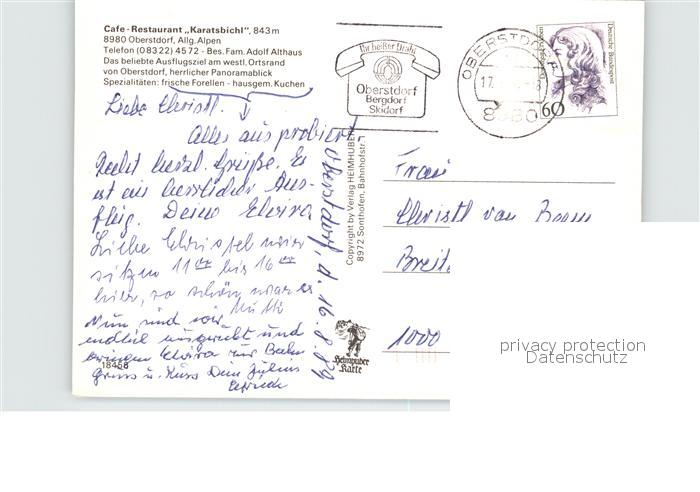 Cafe-Restaurant „Karatsbichl", 843 m
8980 Oberstdorf, Allg. Alpen
Telefon (08322) 4572 - Bes. Fam. Adolf Althaus
Das beliebte Ausflugsziel am westl. Ortsrand
von Oberstdorf, herrlicher Panoramablick
Spezialitäten: frische Forellen - hausgem. Kuchen
Liebe Christl.
Alles ausprobiert
Recht herzl. Grüße. Es
ist ein herrlicher Aus-
flug. Deine Elvira
Liebe wir
sitzen 11 bis 16
hier, so schön war es
Mutti
Nun sind wir
endlich ausgeruht und
bringen Elvira zur Bahn
Gruss u. Kuss Dein Julius
18458
Oberstdorf, d. 16.8.89
Copyright by Verlag HEIMHUBER
8972 Sonthofen, Bahnhofstr. 1
Heimhuber
Karte
Ihr heißer Draht
Oberstdorf
Bergdorf
Skidorf
OBERSTDORF
17.
8980
Deutsche Bundespost
60
Frau
Christl van
Breit
1000
privacy protection
Datenschutz